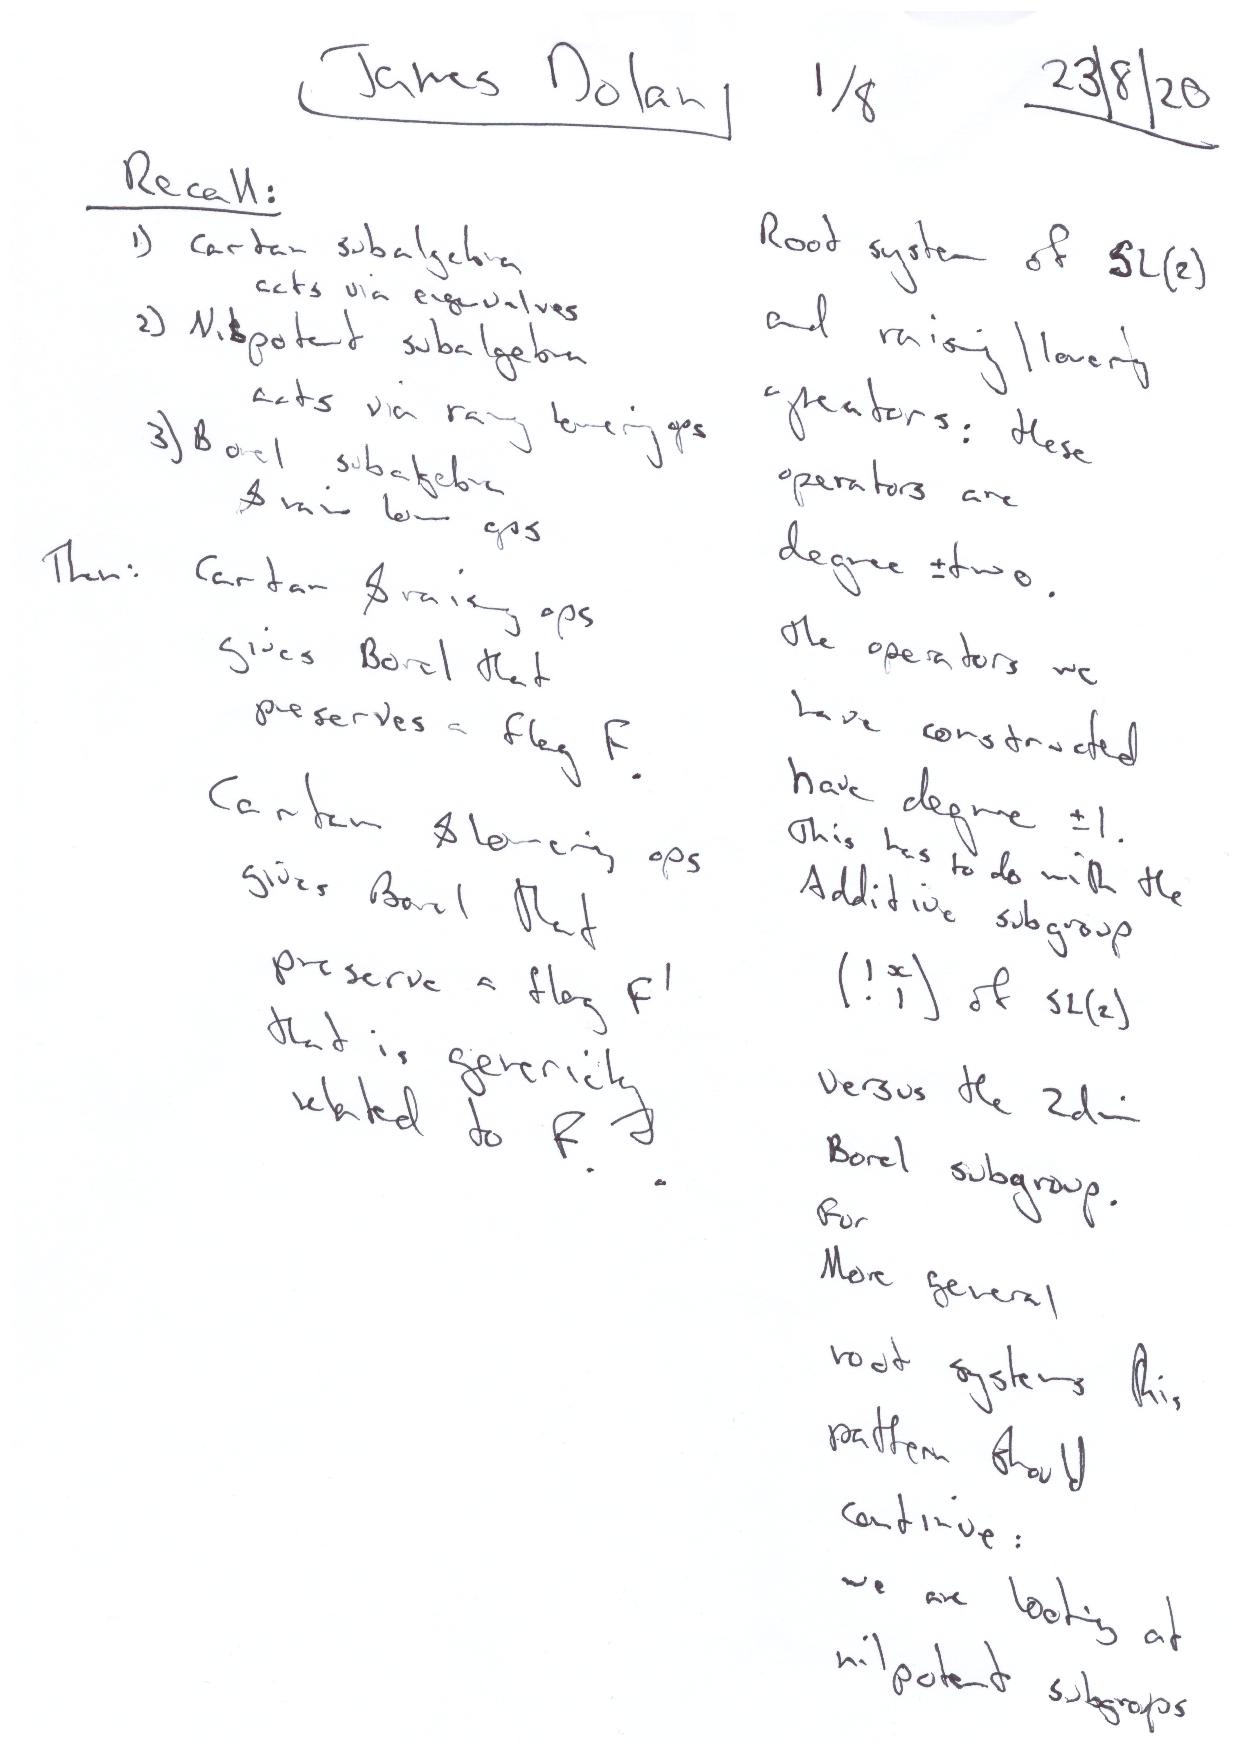 James Dolan 1/8 23/8/20
Recall:
1) Cartan subalgebra
acts via eigenvalues
2) Nilpotent subalgebra
acts via lowering ops
3) Borel subalgebra
& ops
Then: Cartan & raising ops
gives Borel that
preserves a flag F.
Cartan & lowering ops
gives Borel that
preserve a flag F'
that is genericly
related to F.
Root system of SL(2)
and raising/lowering
operators: these
operators are
degree ±two.
the operators we
have constructed
have degree ±1.
This has to do with the
Additive subgroup
(1 x
. 1) of SL(2)
versus the 2dim
Borel subgroup.
For
More general
root systems this
pattern should
continue:
we are looking at
nilpotent subgroups